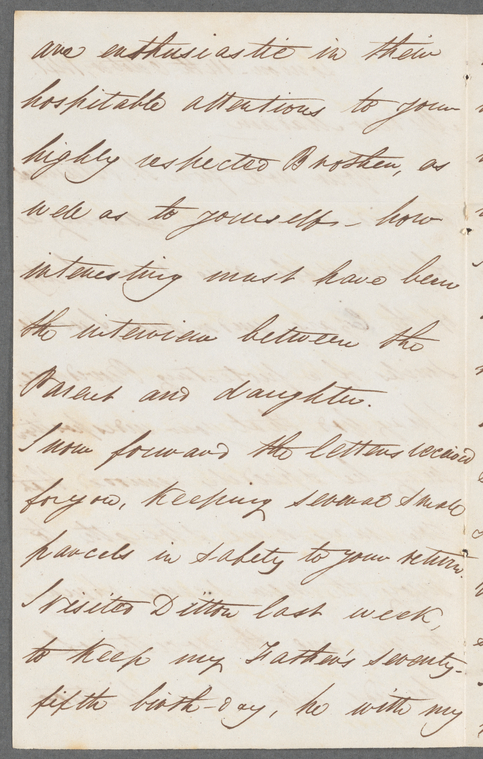 are enthusiastic in their
hospitable attentions to your
highly respected Brother, as
well as to yourself – how
interesting must have been
the interview between the
Parent and daughter.
I now forward the letters received
for you, keeping several small
parcels in safety to your return.
I visited Ditton last week,
to keep my Father's seventy-
fifth birth-day, he with my